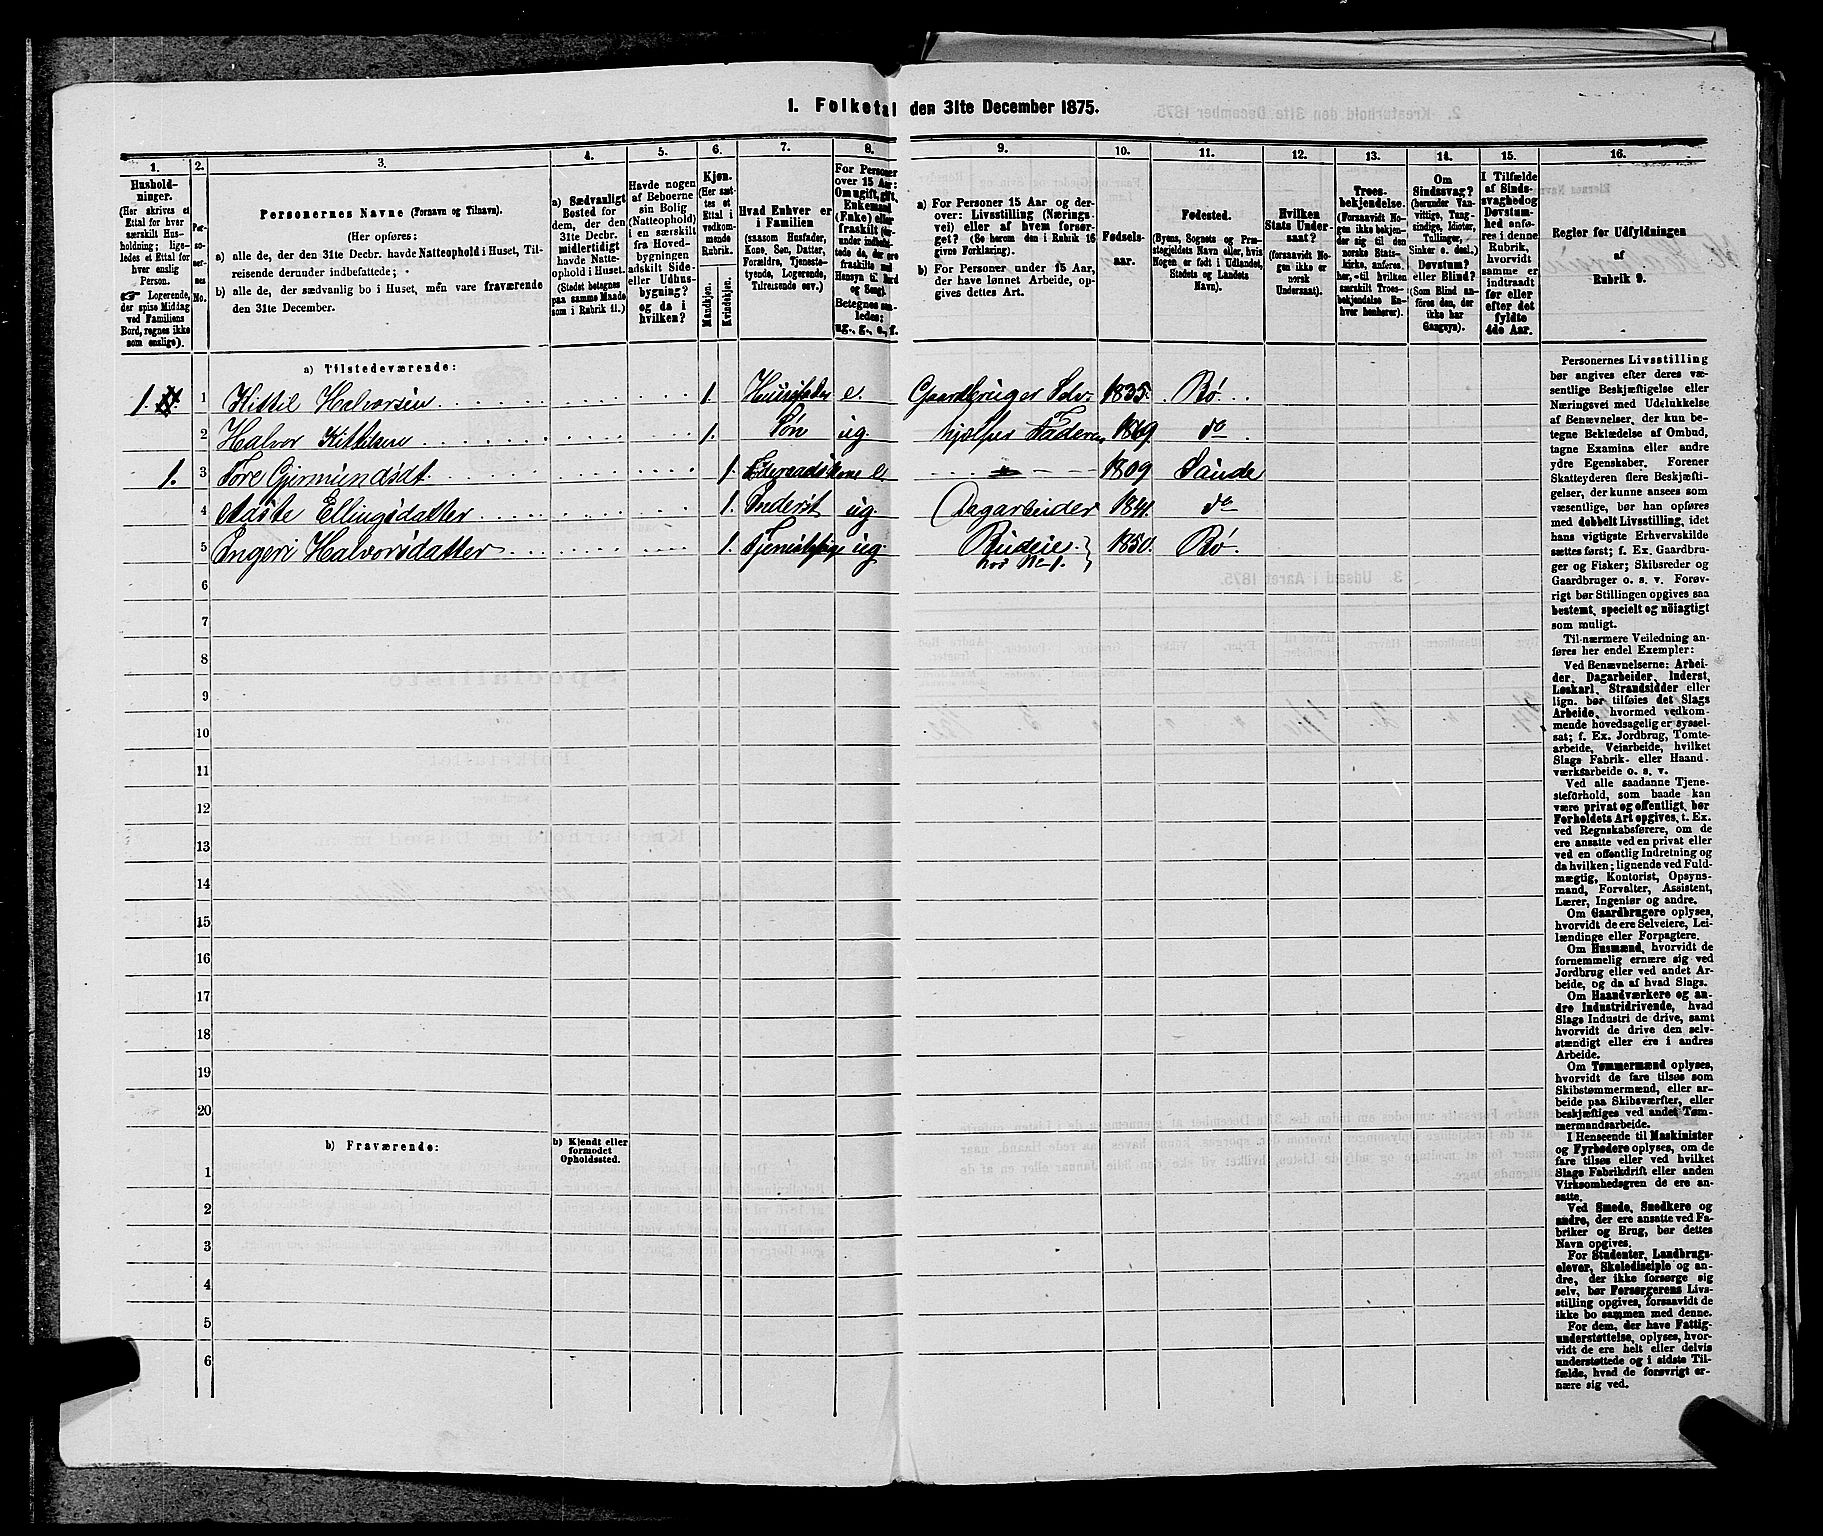 1. Folketal den 31te December 1875.
1.
2.
3.
4.
5.
6.
7.
8.
9.
10.
11.
12.
13.
14.
15.
16.
Hushold-
ninger.
(Her skrives et
Ettal for hver
særskilt Hus-
holdning; lige-
ledes et Ettal for
hver enslig
Person.
☞ Logerende,
der spise Middag
ved Familiens
Bord, regnes ikke
som enslige).
Per-
so-
ner-
nes
No.
Personernes Navne (Fornavn og Tilnavn).
(Her opføres:
a) alle de, der den 31te Decbr. havde Natteophold i Huset, Til-
reisende derunder indbefattede;
b) alle de, der sædvanlig bo i Huset, men vare fraværende
den 31te December.
a) Sædvanligt
Bosted for
dem, der den
31te Decbr.
midlertidigt
havde Natte-
ophold i Huset.
(Stedet betegnes
paa samme Maade
som i Rubrik 11.)
Havde nogen
af Beboerne
sin Bolig
(Natteophold)
i en særskilt
fra Hoved-
bygningen
adskilt Side-
eller Udhus-
bygning?
og da i
hvilken?
Kjøn.
(Her sæt-
tes et
Ettal i
vedkom-
mende
Rubrik.
Mandkjøn.
Kvindekjøn.
Hvad Enhver er
i Familien
(saasom Husfader,
Kone, Søn, Datter,
Forældre, Tjeneste-
tyende, Logerende,
Tilreisende osv.)
For Personer
over 15 Aar:
Om ugift, gift,
Enkemand
(Enke) eller
fraskilt
Betegnes saa-
ledes:
ug., g., e., f.
a) For Personer 15 Aar og der-
over: Livsstilling (Nærings-
vei) eller af hvem forsør-
get? (Se herom den i Rubrik 16
givne Forklaring).
b) For Personer under 15 Aar,
der have lønnet Arbeide, op-
gives dettes Art.
Fødsels-
aar.
Fødested.
(Byens, Sognets og Præ-
stegjeldets Navn eller, hvis
Nogen er født i Udlandet,
Stedets og Landets
Navn).
Hvilken
Stats Under-
saat?
(forsaavidt No-
gen ikke er
norsk
Undersaat).
Troes-
bekjendelse.
(Forsaavidt No-
gen ikke bekjen-
der sig til den
norske Stats-
kirke, anføres
her, til hvilken
særskilt Troes-
bekjendelse En-
hver henhører).
Om
Sindssvag?
(herunder Van-
vittige, Tung-
sindige, Idioter,
Tullinger,
Sinker o. desl.)
Døvstum?
eller Blind?
(Som Blind an-
føres den, der
ikke har
Gangsyn).
I Tilfælde
af Sinds-
svaghed og
Døvstum-
hed anfø-
res i denne
Rubrik,
hvorvidt
samme er
indtraadt
før eller
efter det
fyldte
4de Aar.
Regler for Udfyldningen
af
Rubrik 9.
a) Tilstedeværende:
1. 1 Kittil Halvorsen 1. Huusfader e. Gaardbruger Selv. 1835. Bø.
2 Halvor Kittilsen 1. Søn ug. hjælper Faderen 1869. do
1. 3 Tore Gjermundsdt. 1. e. 1809. Saude
4 Aaste Ellingsdatter 1. Inderst ug. Dagarbeider 1841. do
5 Ingeri Halvorsdatter 1. Tjenestepige ug. Budeie 1850. Bø.
hos No 1.
6
7
8
9
10
11
12
13
14
15
16
17
18
19
20
b) Fraværende:
b) Kjendt eller
formodet
Opholdssted.
1
2
3
4
5
6
Personernes Livsstilling
bør angives efter deres væ-
sentlige Beskjæftigelse eller
Næringsvei med Udelukkelse
af Benævnelser, der kun be-
tegne Beklædelse af Ombud,
tagne Examina eller andre
ydre Egenskaber. Forener
Skatteyderen flere Beskjæfti-
gelser, der kunne ansees som
væsentlige, bør han opføres
med dobbelt Livsstilling, idet
hans vigtigste Erhvervskilde
sættes først; f. Ex. Gaardbru-
ger og Fisker; Skibsreder og
Gaardbruger o. s. v. Forøv-
rigt bør Stillingen opgives saa
bestemt, specielt og nøiagtigt
som muligt.
Til nærmere Veiledning an-
føres her endel Exempler:
Ved Benævnelserne: Arbei-
der, Dagarbeider, Inderst,
Løskarl, Strandsidder eller
lign. bør tilføies det Slags
Arbeide, hvormed vedkom-
mende hovedsagelig er syssel-
sat; f. Ex. Jordbrug, Tomte-
arbeide, Veiarbeide, hvilket
Slags Fabrik- eller Haand-
værksarbeide o. s. v.
Ved alle saadanne Tjene-
steforhold, som baade kan
være privat og offentligt, bør
Forholdets Art opgives, t. Ex.
ved Regnskabsførere, om de
ere ansatte ved en privat eller
ved en offentlig Indretning og
da hvilken; lignende ved Fuld-
mægtig, Kontorist, Opsyns-
mand, Forvalter, Assistent,
Lærer, Ingeniør og andre.
Om Gaardbrugere oplyses,
hvorvidt de ere Selveiere, Lei-
lændinge eller Forpagtere.
Om Husmænd, hvorvidt de
fornemmelig ernære sig ved
Jordbrug eller ved andet Ar-
beide, og da af hvad Slags.
Om Haandværkere og an-
dre Industridrivende, hvad
Slags Industri de drive, samt
hvorvidt de drive den selv-
stændigt eller ere i andres
Arbeide.
Om Tømmermænd oplyses,
hvorvidt de fare tilsøs som
Skibstømmermænd, eller ar-
beide paa Skibsværfter, eller
beskjæftiges ved andet Tøm-
mermandsarbeide.
I Henseende til Maskinister
og Fyrbødere oplyses, om de
fare tilsøs eller ved hvilket
Slags Fabrikdrift eller anden
Virksomhedsgren de ere an-
satte.
Ved Smede, Snedkere og
andre, der ere ansatte ved Fa-
briker og Brug, bør dettes
Navn opgives.
For Studenter, Landbrugs-
elever, Skoledisciple og an-
dre, der ikke forsørge sig
selv, bør Forsørgerens Livs-
stilling opgives, forsaavidt de
ikke bo sammen med denne.
For dem, der have Fattig-
understøttelse, oplyses, hvor-
vidt de ere helt eller delvis
understøttede og i sidste Til-
fælde, hvad de forøvrigt er-
nære sig ved.